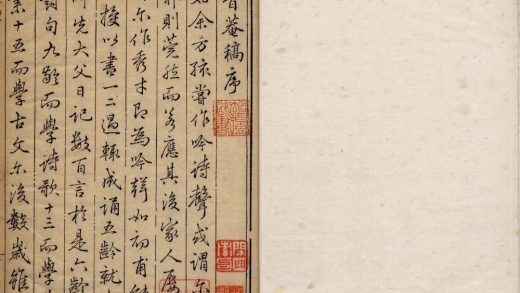 菴稿序
如余方孩嘗作吟诗聲或謂尔
則莞然而應其後家人屡
尔作秀才即為吟聲如初甫
授以書一二過輒成誦五齡就
先大父日记数百言於是六齡
句九齡而學诗歌十三而學
業十五而學古文尔後數歲雖